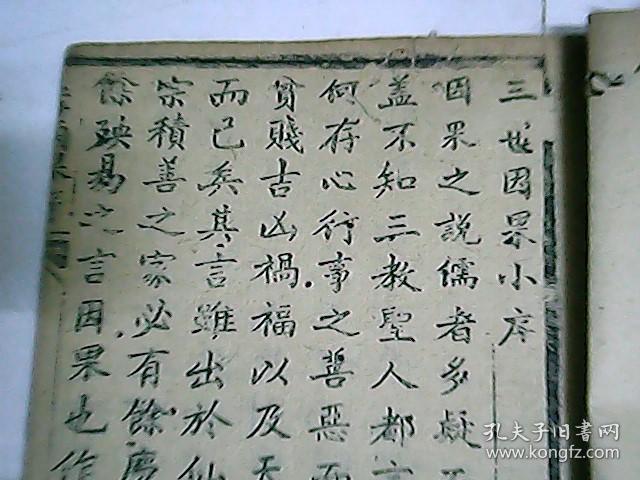 三世因果小序
因果之説儒者多疑
盖不知三教聖人都
何存心行事之善惡而
貧賤吉凶禍福以及天
而已矣其言雖出於仙
宗積善之家必有餘慶
餘殃易之言因果也作
孔夫子旧书网
www.kongfz.com